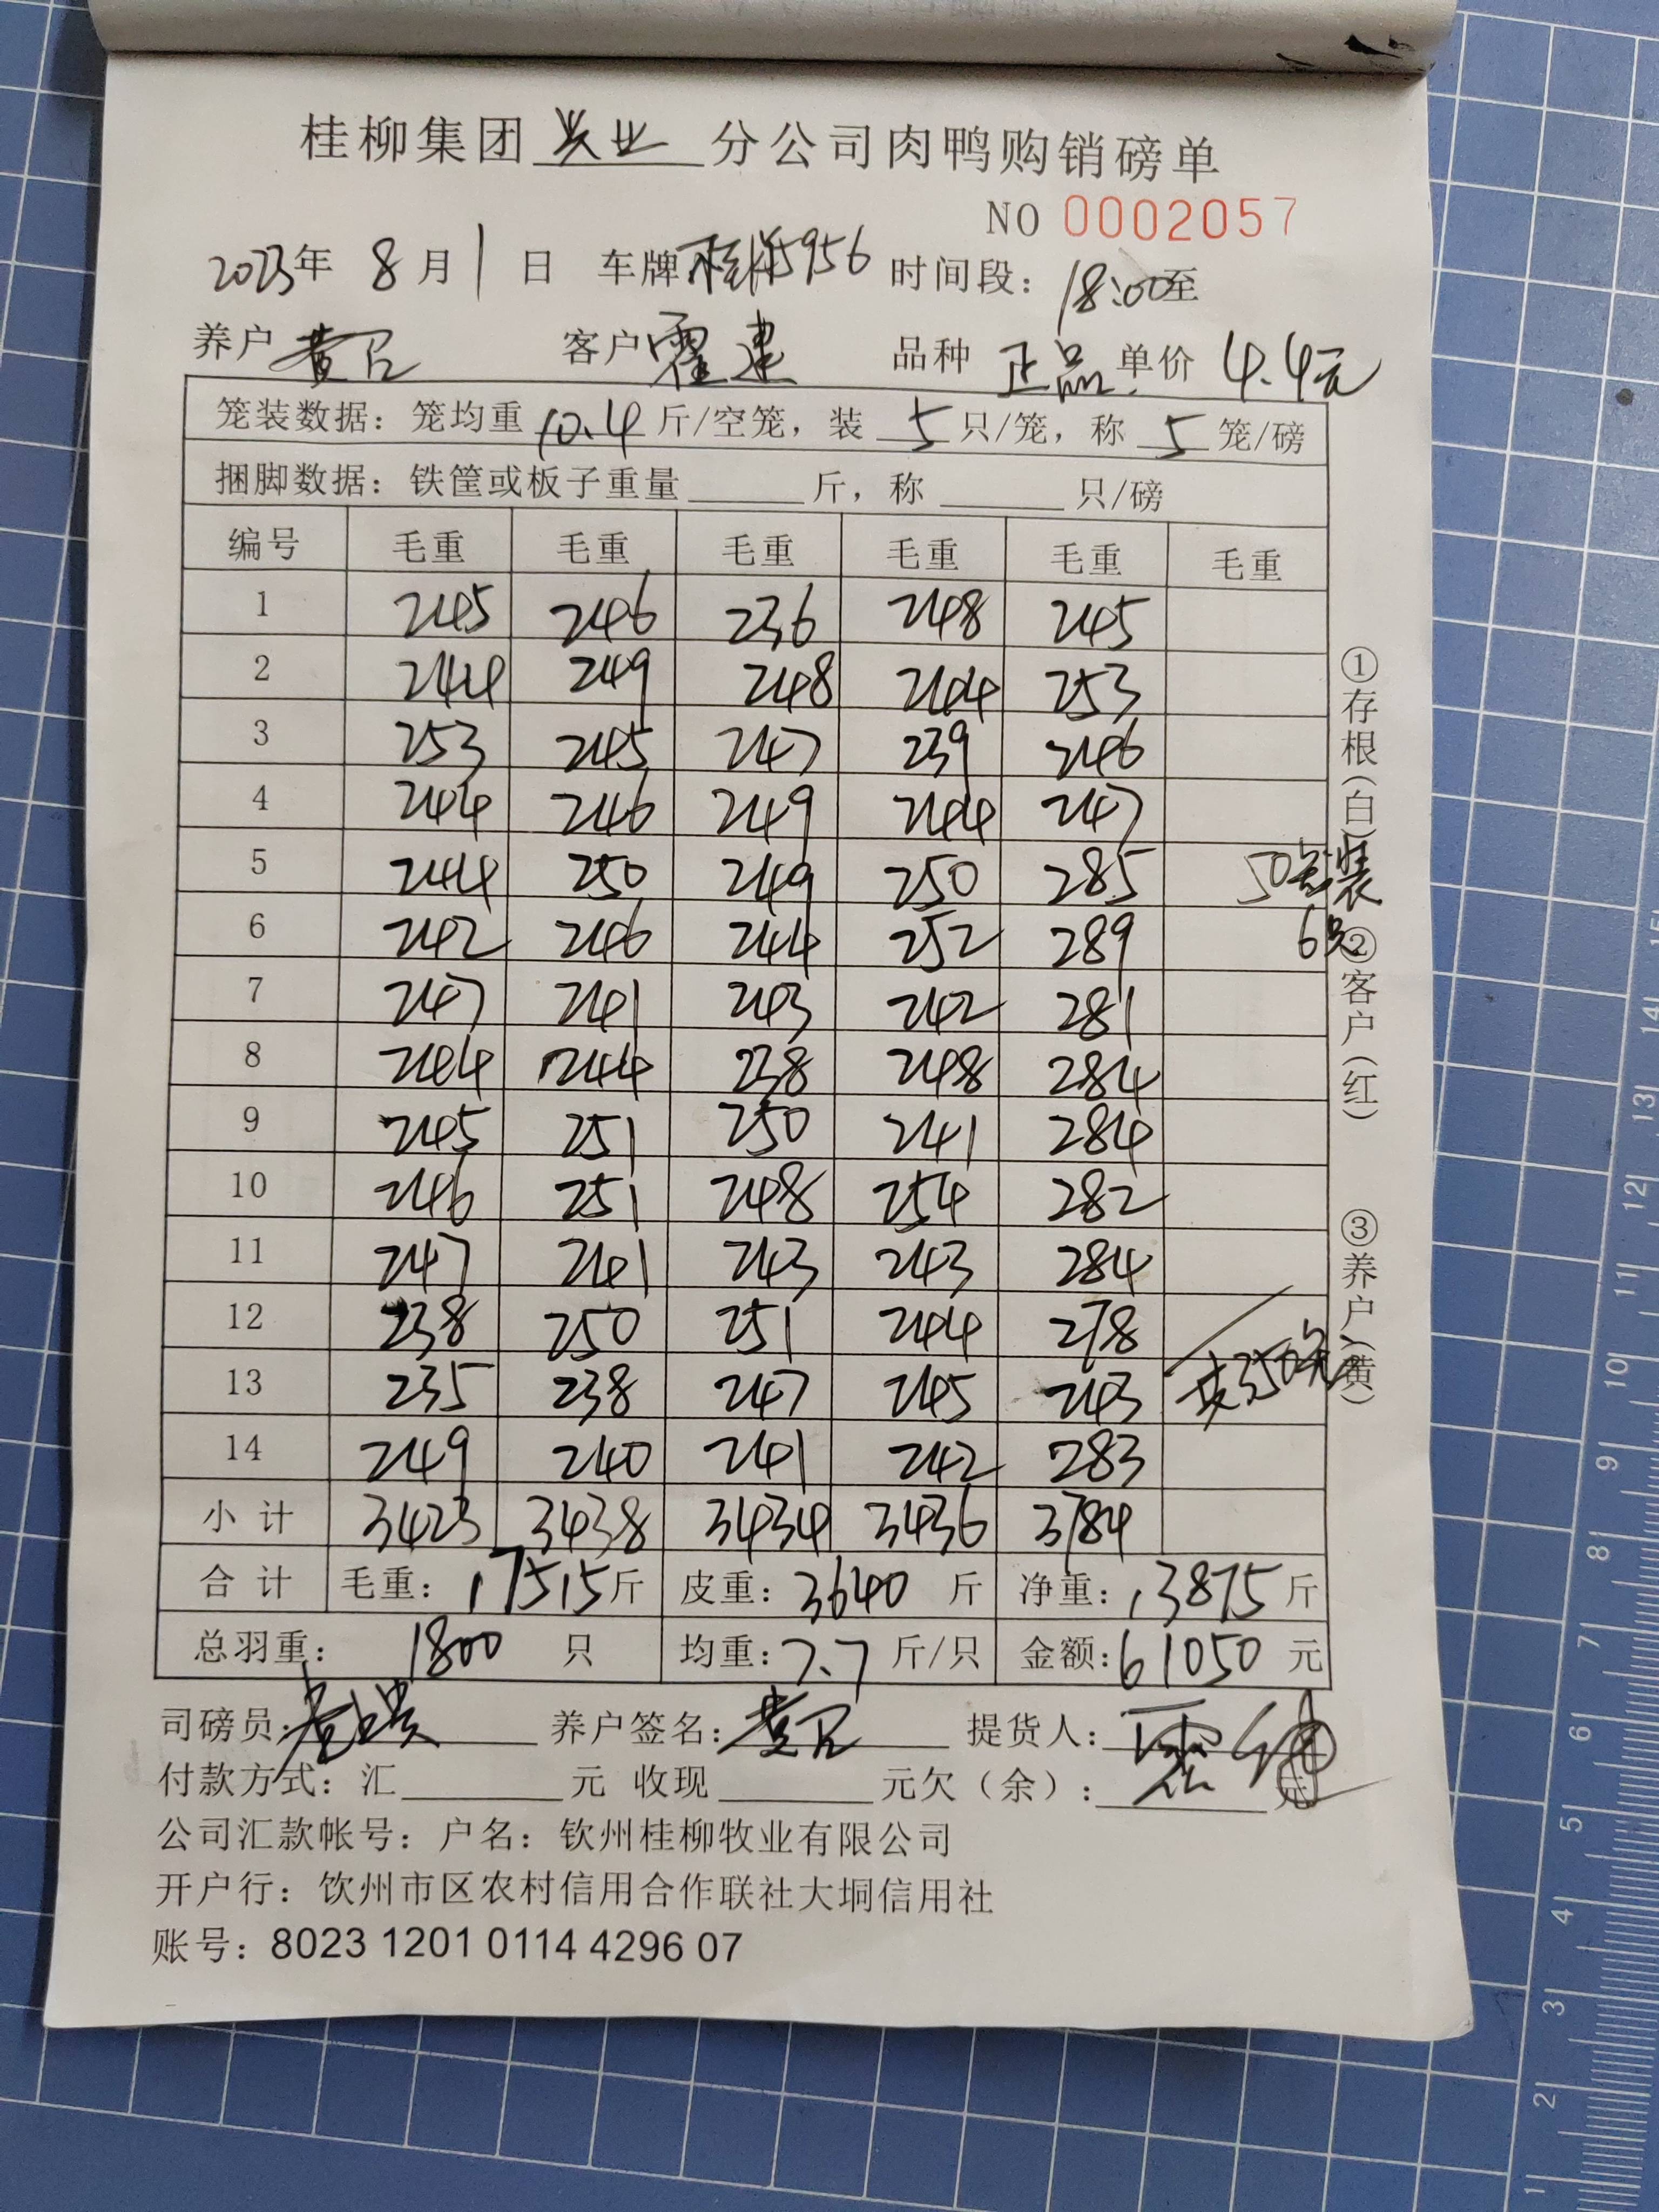 桂柳集团 兴业 分公司肉鸭购销磅单
NO 0002057
2023年 8月 1日 车牌 5956 时间段：18:00至
养户 黄 客户 霍建 品种 正品 单价 4.4元
笼装数据：笼均重 10.4 斤/空笼，装 5 只/笼，称 5 笼/磅
捆脚数据：铁筐或板子重量 斤，称 只/磅
编号 毛重 毛重 毛重 毛重 毛重 毛重
1 245 246 236 248 245
2 244 249 248 244 253
3 253 245 247 239 246
4 244 246 249 244 247
5 244 250 249 250 285 50 装
6 242 246 244 252 289 6只
7 247 241 243 242 281
8 244 244 238 248 284
9 245 251 250 241 284
10 246 251 248 254 282
11 247 241 243 243 284
12 238 250 251 244 278
13 235 238 247 245 243 共350
14 249 240 241 242 283
小计 3423 3438 3434 3436 3784
合计 毛重：17515斤 皮重：3640 斤 净重：13875斤
总羽重： 1800 只 均重：7.7 斤/只 金额：61050 元
司磅员： 养户签名：黄 提货人：
付款方式：汇 元 收现 元欠（余）： 元
公司汇款帐号：户名：钦州桂柳牧业有限公司
开户行：饮州市区农村信用合作联社大垌信用社
账号：8023 1201 0114 4296 07
①存根（白）
②客户（红）
③养户（黄）
1
2
3
4
5
6
7
8
9
10
11
12
13
14
15